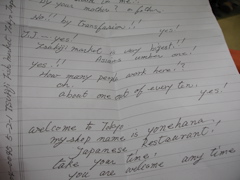 By your mother & father
No!! by transfusion!!
I.I - yes!
yes!
Tsukiji market is very bigest!!
yes!!
Answer number one!
How many people work here!?
oh.
about one out of every ten.
yes!
welcome to Tokyo
my shop name is yonehana
Japanese Restaurant!
take your time!
you are welcome any time